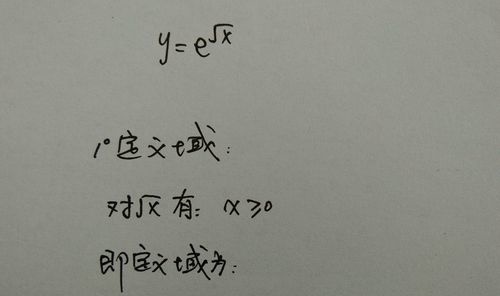 y=e^√x
1°定义域:
对√x有: x≥0
即定义域为: